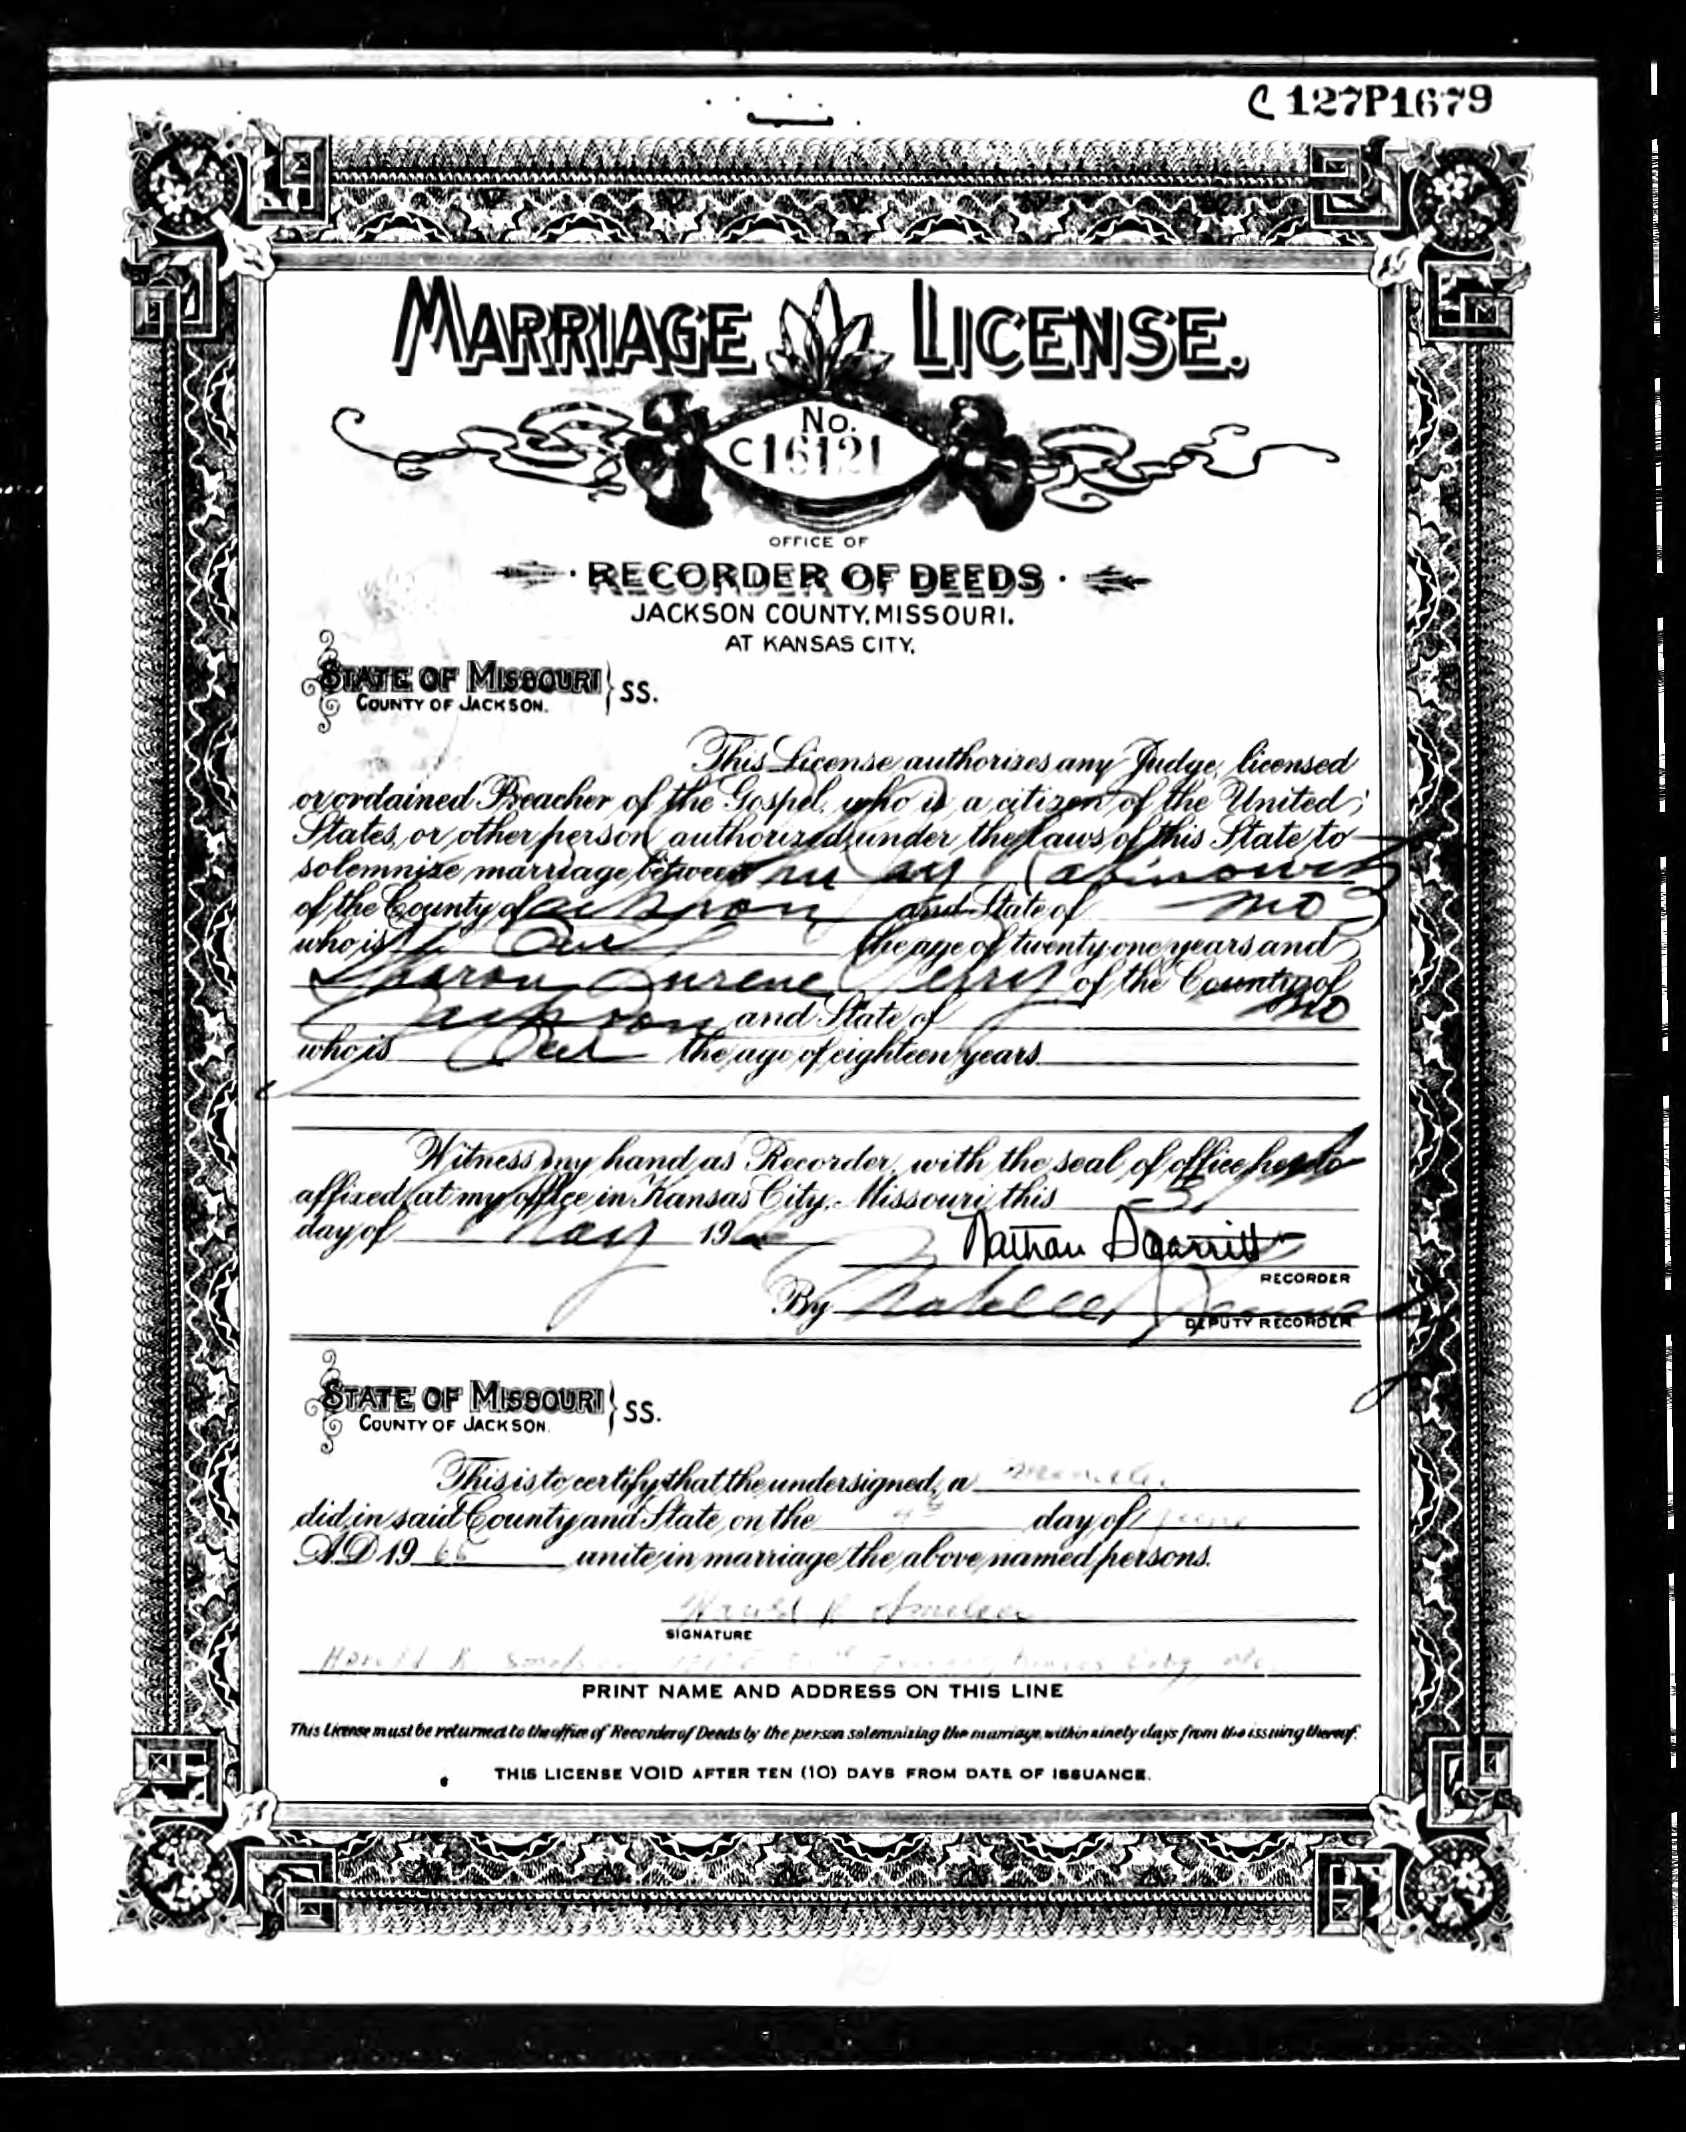 C 127P1679
MARRIAGE LICENSE.
No.
C16121
OFFICE OF
RECORDER OF DEEDS
JACKSON COUNTY, MISSOURI.
AT KANSAS CITY.
STATE OF MISSOURI } SS.
COUNTY OF JACKSON.
This License authorizes any Judge, licensed
or ordained Preacher of the Gospel, who is a citizen of the United
States, or other person authorized under the laws of this State to
solemnize marriage between Jay Rabinowitz
of the County of Jackson and State of Mo
who is Over the age of twenty one years and
Sharon Perry of the County of
Jackson and State of Mo
who is Over the age of eighteen years.
Witness my hand as Recorder, with the seal of office hereto
affixed, at my office in Kansas City, Missouri, this
day of May 19
RECORDER
By
DEPUTY RECORDER
STATE OF MISSOURI } SS.
COUNTY OF JACKSON.
This is to certify that the undersigned, a
did in said County and State, on the 4th day of June
A.D. 19 66 unite in marriage the above named persons.
Harold R
SIGNATURE
Harold R
PRINT NAME AND ADDRESS ON THIS LINE
This License must be returned to the office of Recorder of Deeds by the person solemnizing the marriage within ninety days from the issuing thereof.
THIS LICENSE VOID AFTER TEN (10) DAYS FROM DATE OF ISSUANCE.